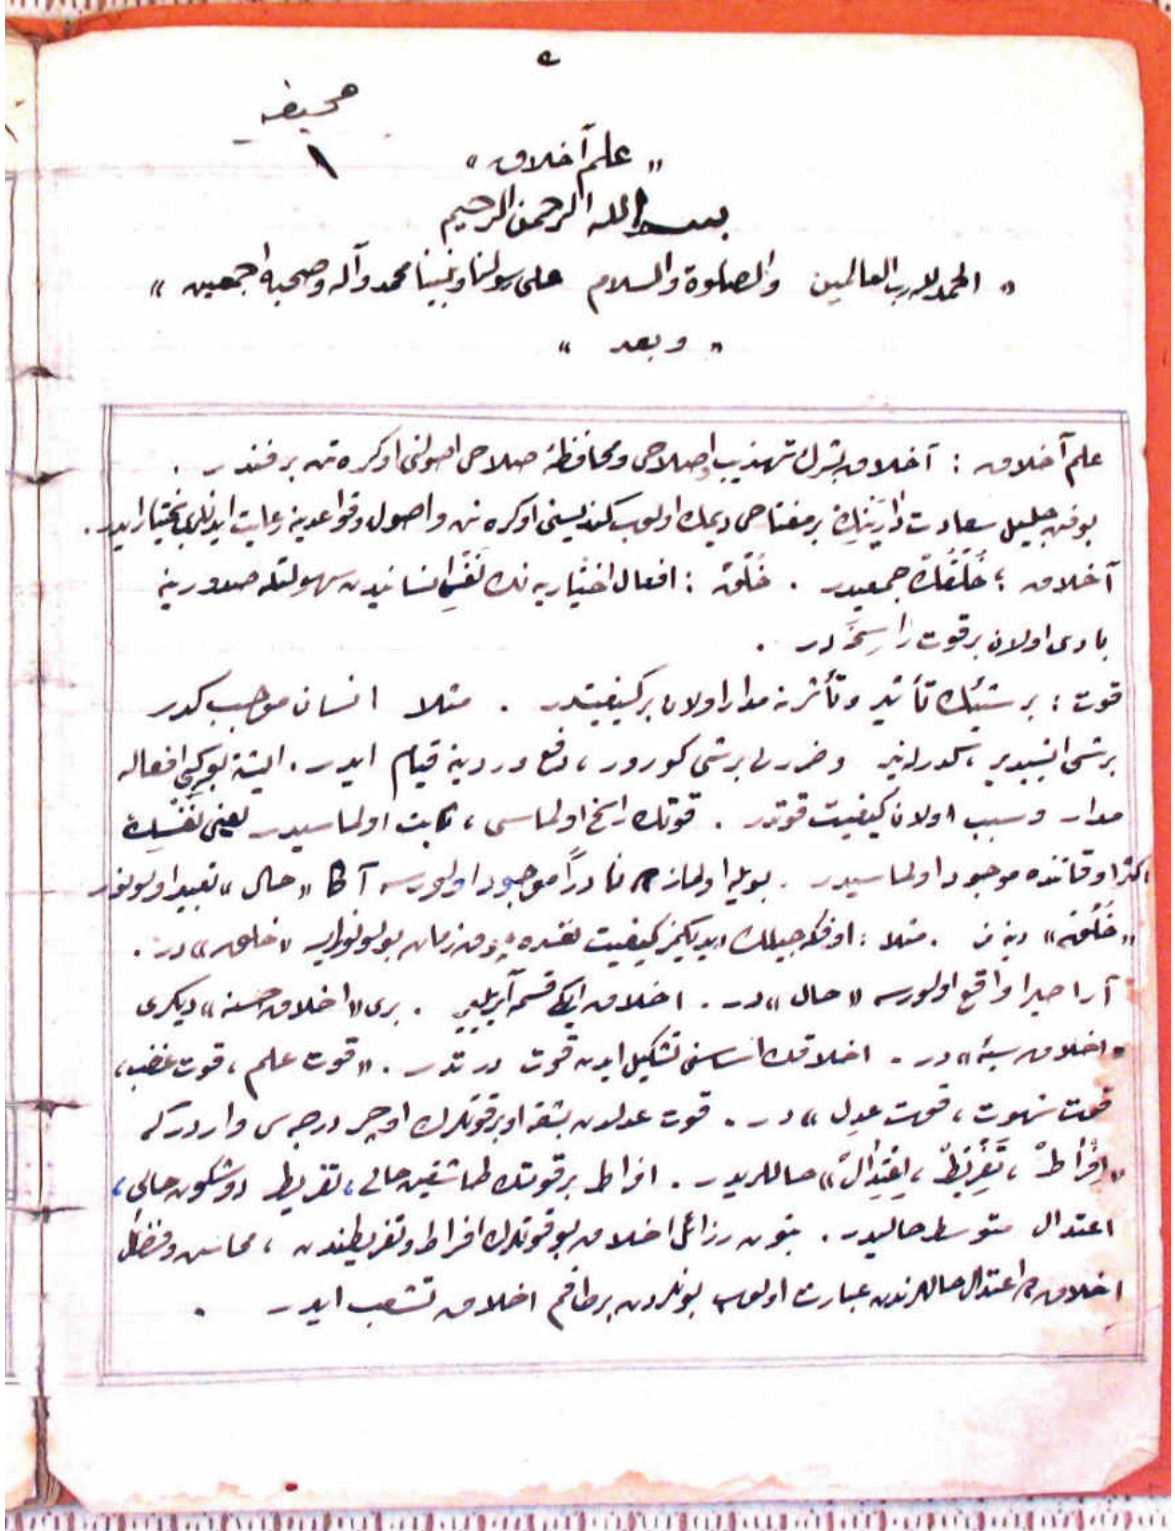 صحیفه
١
« علم آخلاق »
بسم الله الرحمن الرحيم
« الحمد لله رب العالمين والصلوة والسلام على رسولنا ونبينا محمد وآله وصحبه اجمعين »
« وبعد »
علم آخلاق : آخلاق بشرك تهذيب اصلاحی و محافظۀ صلاحی اصولنی اوكره تن بر فندر .
بوفن جليل سعادت دارَينِڭ بر مفتاحی ديمك اولوب كنديسنی اوكره نن و اصول و قواعدينه رعايت ايدنلری بختيار ايدر .
آخلاق ؛ خُلُقڭ جمعيدر . خُلُق : افعال اختياريه نك نَفسِ انسانيدن سهولتله صدورينه
بادی اولان بر قوت رَاسِخَه در .
قوت : بر شيئك تأثير و تأثرينه مدار اولان بر كيفيتدر . مثلا انسان موجب كدر
برشی ايشيدير ، كدرلنير و ضررلی برشی كورور ، دفع و ردينه قيام ايدر . ايشته بو كبی افعاله
مدار و سبب اولان كيفيت قوتدر . قوتك راسخ اولماسی ، ثابت اولماسيدر يعنی نَفسِڭ
اكثر اوقاتنده موجود اولماسيدر . بويله اولماز نادراً موجود اولورسه آكا «حال» تعبير اولونور
«خُلُق» دينمز . مثلا : اوفكه جيلك ديديكمز كيفيت نفسده زمان بولونورايسه «خلق» در .
آرا صيرا واقع اولورسه «حال» در . اخلاق ايكی قسمه آيريلير . بری «اخلاق حسنه» ديكری
«اخلاق سيئه» در . اخلاقك اساسنی تشكيل ايدن قوت درتدر . «قوت علم ، قوت غضب ،
قوت شهوت ، قوت عدل» در . قوت عدلدن بشقه اوبر قوتلرك اوچر درجه سی واردركه
«اِفْرَاطْ ، تَفْرِيطْ ، اِعْتِدَالْ» حاللريدر . افراط بر قوتك طاشقين حالی ، تفريط دوشكون حالی ،
اعتدال متوسط حاليدر . بتون رزائل اخلاق بو قوتلرك افراط و تفريطندن ، محاسن و فضائل
اخلاق ده اعتدال حاللرندن عبارت اولوب بونلردن بر طاقم اخلاق تشعب ايدر .